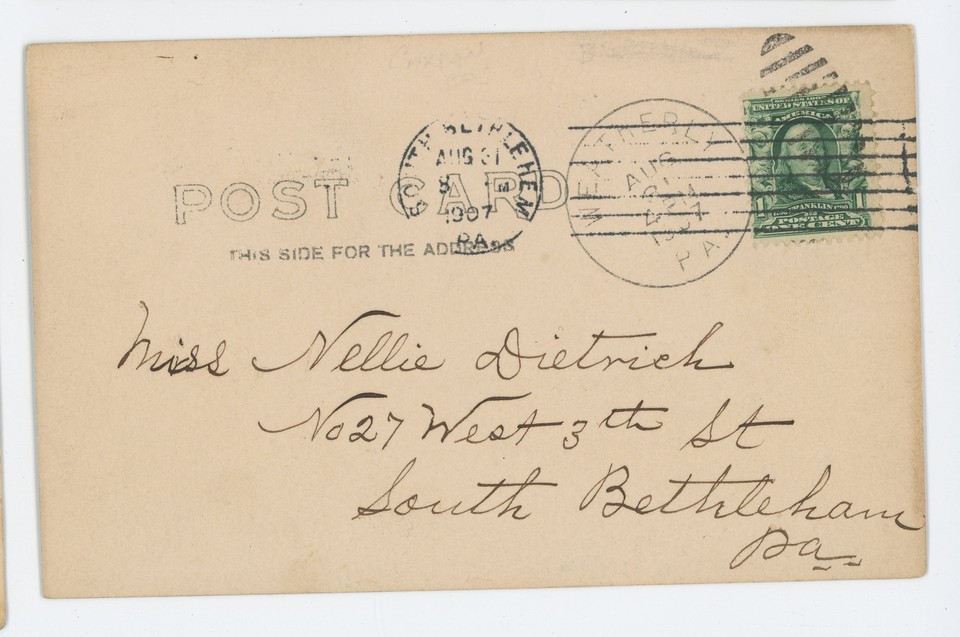 POST CARD
THIS SIDE FOR THE ADDRESS
SOUTH BETHLEHEM
AUG 31
1907
PA.
WEATHERLY
AUG
31
1907
PA.
SERIES 1902
UNITED STATES OF
AMERICA
FRANKLIN
POSTAGE
ONE CENT
Miss Nellie Dietrich
No 27 West 3th St
South Bethleham
Pa.